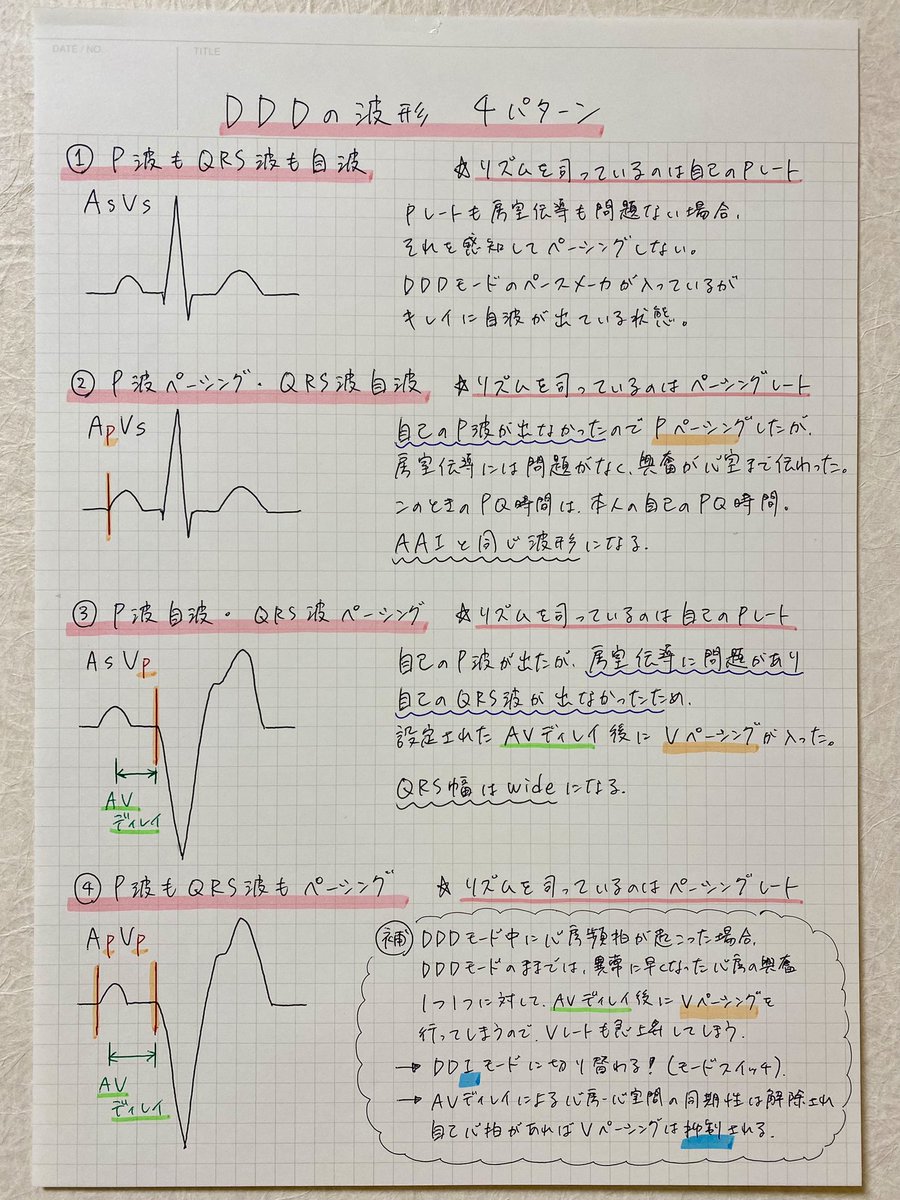 DATE / NO.
TITLE
DDDの波形 4パターン
① P波もQRS波も自波
☆リズムを司っているのは自己のPレート
AsVs
Pレートも房室伝導も問題ない場合、
それを感知してペーシングしない。
DDDモードのペースメーカが入っているが
キレイに自波が出ている状態。
② P波ペーシング・QRS波自波
☆リズムを司っているのはペーシングレート
ApVs
自己のP波が出なかったのでPペーシングしたが、
房室伝導には問題がなく、興奮が心室まで伝わった。
このときのPQ時間は、本人の自己のPQ時間。
AAIと同じ波形になる.
③ P波自波・QRS波ペーシング
☆リズムを司っているのは自己のPレート
AsVp
自己のP波が出たが、房室伝導に問題があり
自己のQRS波が出なかったため、
設定されたAVディレイ後にVペーシングが入った。
QRS幅はwideになる.
AV
ディレイ
④ P波もQRS波もペーシング
☆リズムを司っているのはペーシングレート
ApVp
AV
ディレイ
補 DDDモード中に心房頻拍が起こった場合、
DDDモードのままでは、異常に早くなった心房の興奮
1つ1つに対して、AVディレイ後にVペーシングを
行ってしまうので、Vレートも上昇してしまう.
→ DDIモードに切り替わる!(モードスイッチ).
→ AVディレイによる心房-心室間の同期性は解除され
自己心拍があればVペーシングは抑制される.